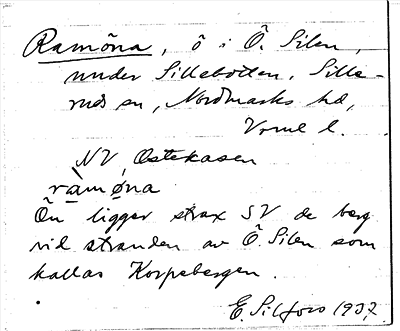 Ramöna, ö i Ö. Silen,
under Sillebotten, Sille-
ruds sn, Nordmarks hd,
Vrml l.
NV Ostekasen
ràmøna
Ön ligger strax SV de berg
vid stranden av Ö. Silen som
kallas Korpebergen.
E. Silfors 1937.